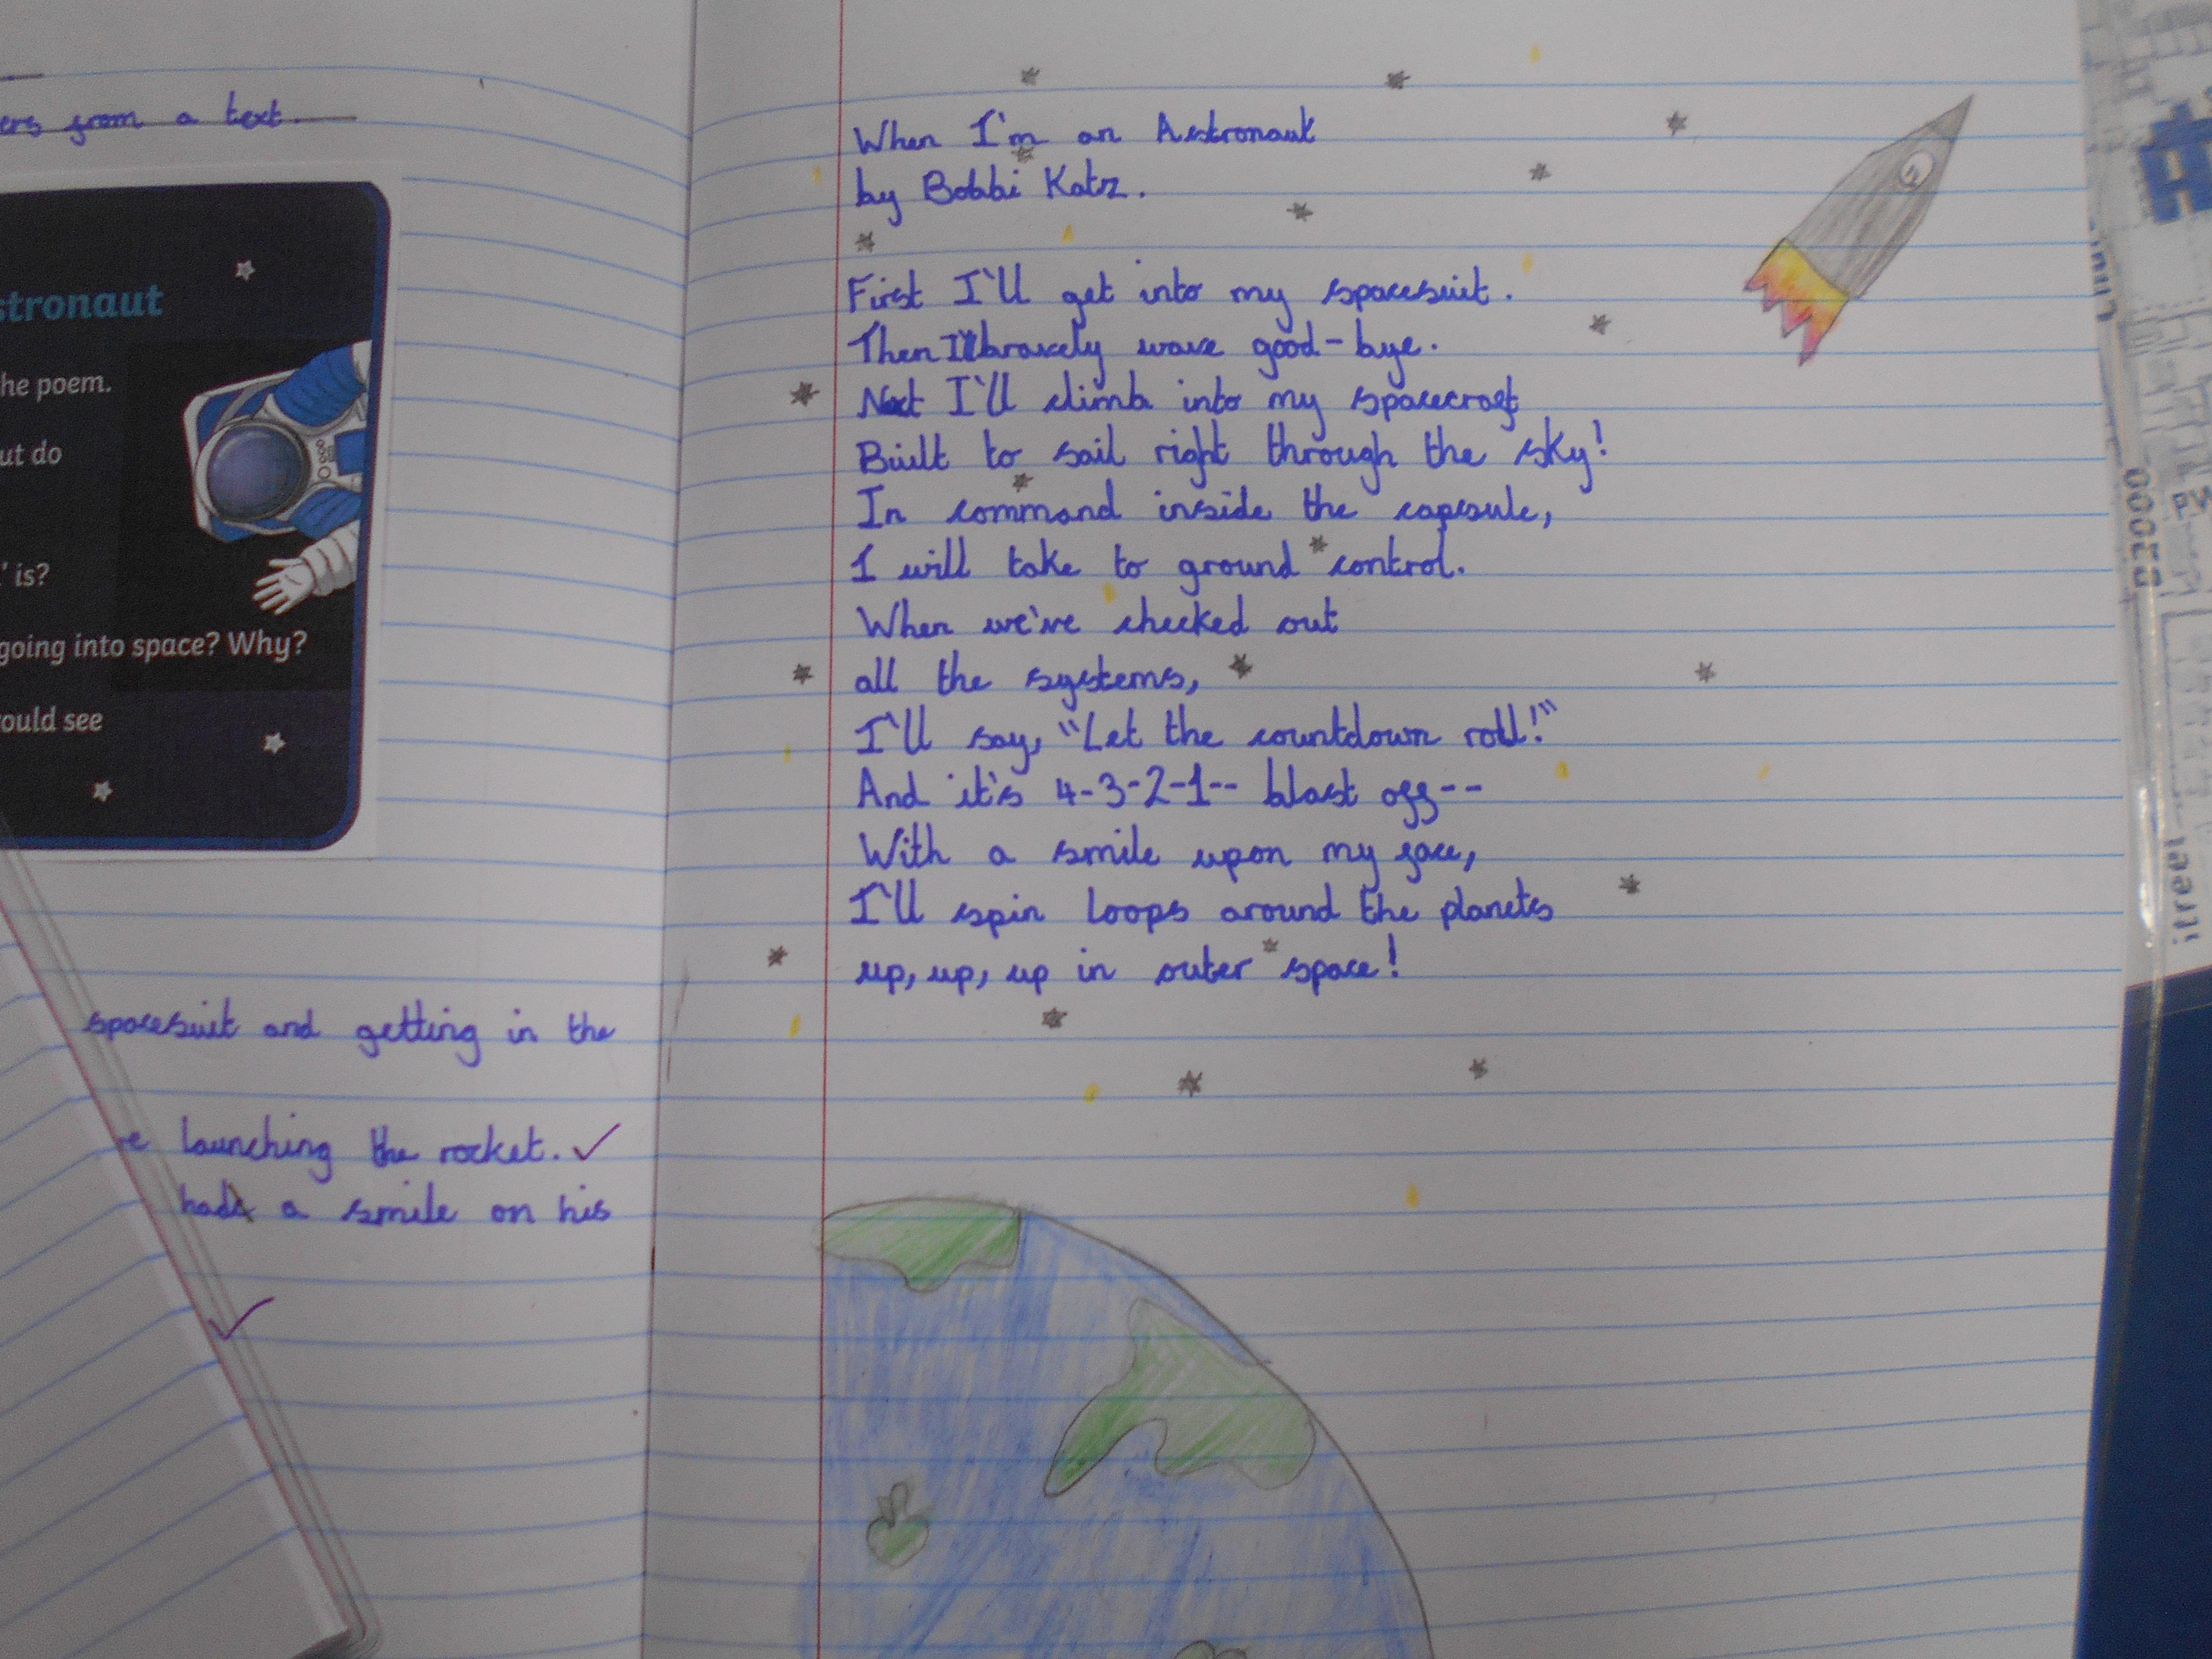 from a text
stronaut
he poem.
ut do
' is?
going into space? Why?
ould see
spacesuit and getting in the
launching the rocket.
had a smile on his
When I'm an Astronaut
by Bobbi Katz.
First I'll get into my spacesuit.
Then I'll bravely wave good-bye.
Next I'll climb into my spacecraft
Built to sail right through the sky!
In command inside the capsule,
I will take to ground control.
When we've checked out
all the systems,
I'll say, "Let the countdown roll!"
And it's 4-3-2-1-- blast off--
With a smile upon my face,
I'll spin loops around the planets
up, up, up in outer space!